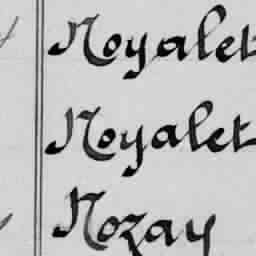 Noyalet
Noyalet
Nozay